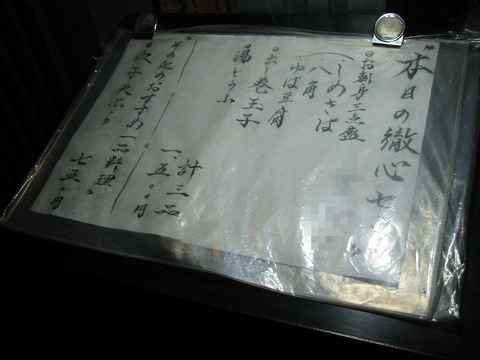 本日の徹心セ
お刺身三点盛
しめさば
八角
ゆば豆腐
出し巻玉子
湯どうふ
計三品
一、五〇〇円
その他のおすすめ一品料理
天ぷら
七五〇円